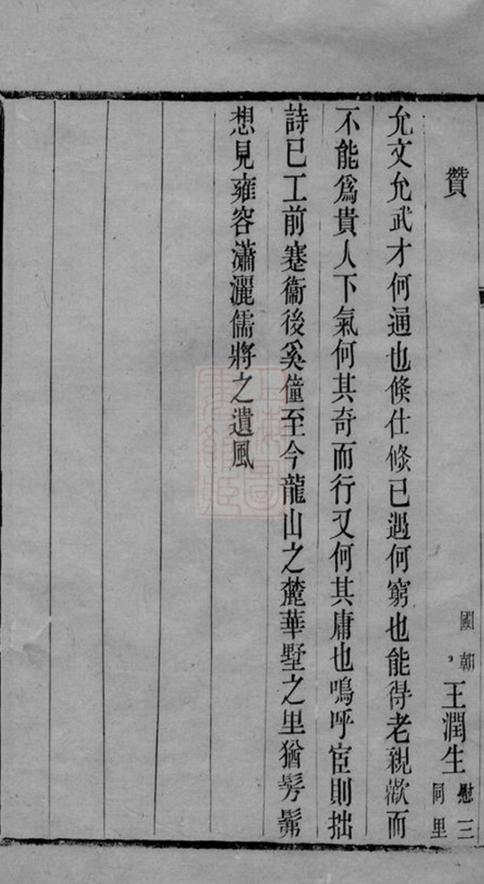 贊
國朝 王潤生 慰三 同里
允文允武才何通也倐仕倐已遇何窮也能得老親歡而
不能為貴人下氣何其奇而行又何其庸也嗚呼宦則拙
詩已工前蹇衞後奚僮至今龍山之麓華墅之里猶髣髴
想見雍容瀟灑儒將之遺風